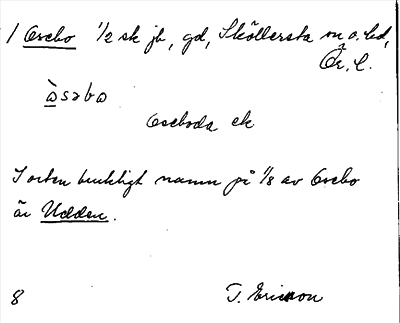 / Osebo 1/2 sk jb, gd, Sköllersta sn o. hd,
Ör. l.
ὼsəb𝑜
Oseboda ek
I orten brukligt namn på 1/8 av Osebo
är Udden.
8 T. Ericsson